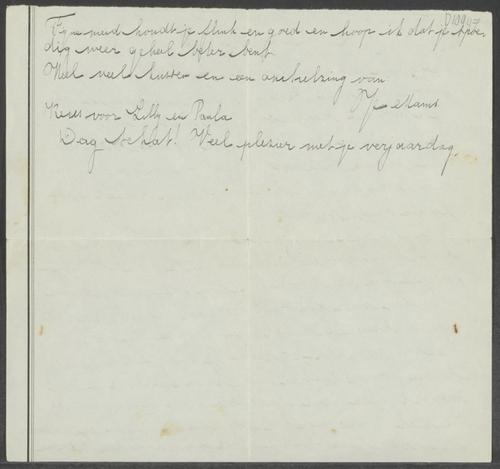 Fijne meid houdt je flink en goed en hoop ik dat je spoe-
dig weer geheel beter bent.
Heel veel kussen en een omhelzing van
Je Mams
Kus voor Lilly en Paula
Dag schat! Veel plezier met je verjaardag.